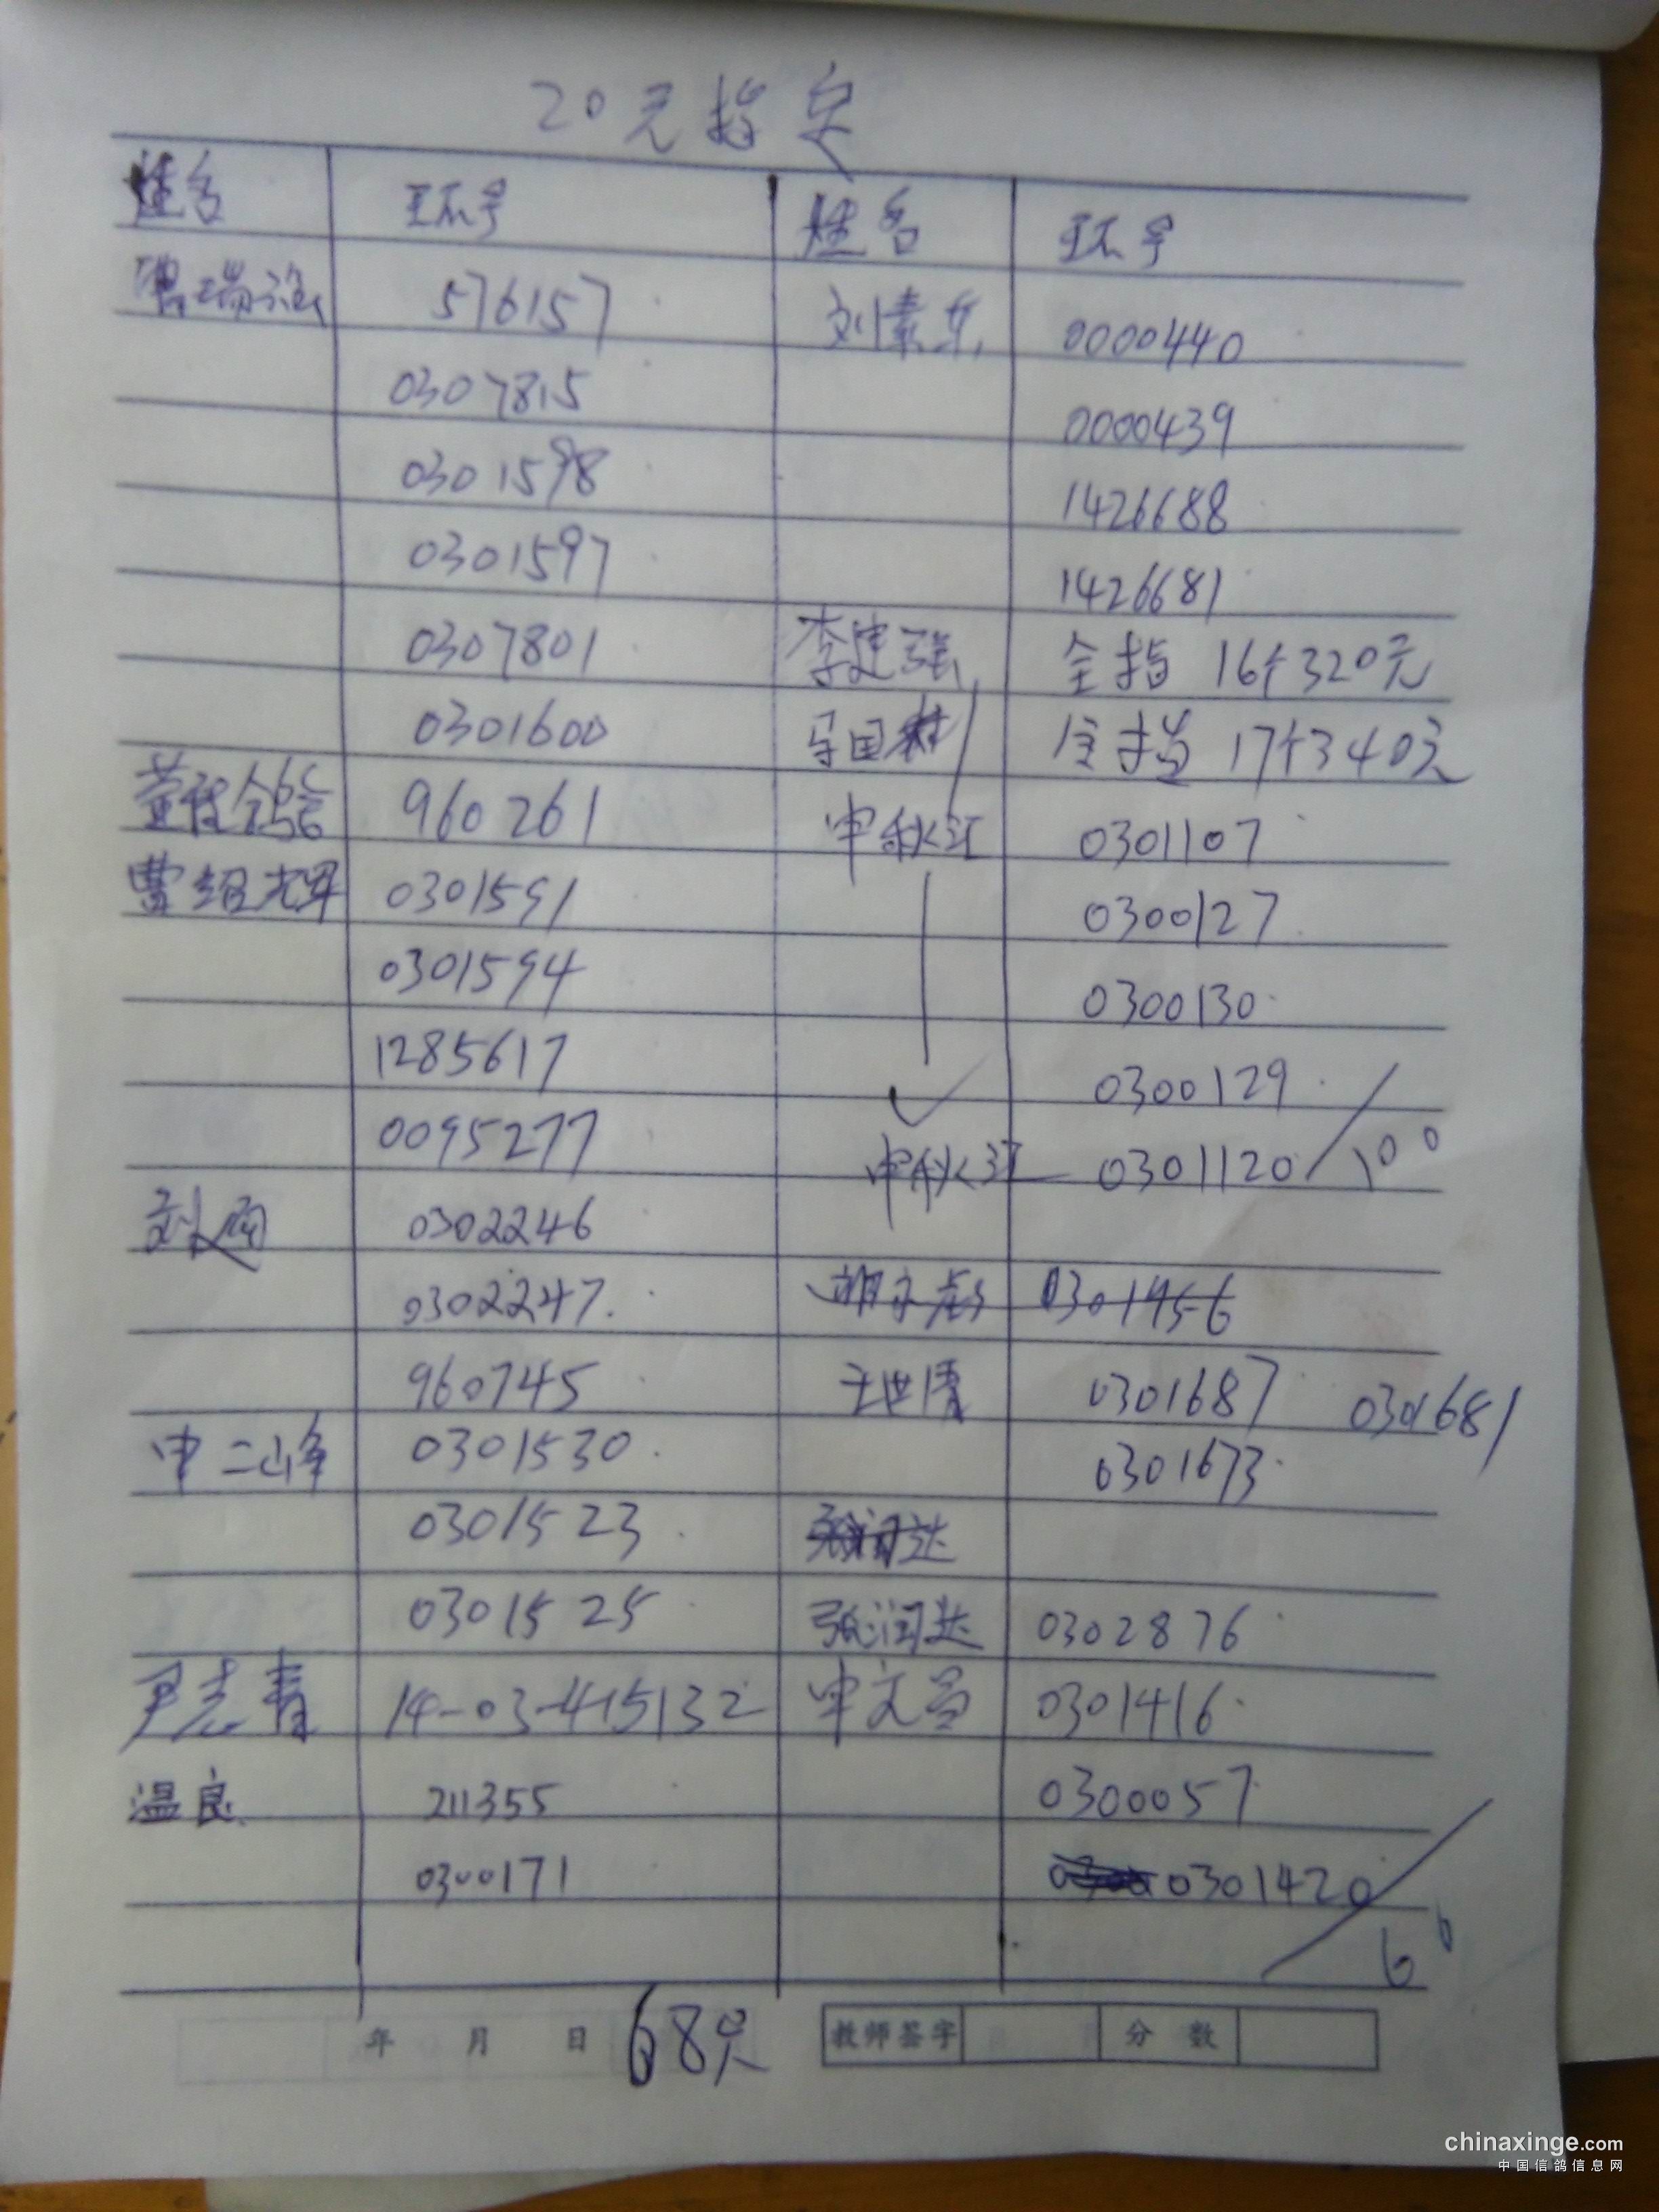 20元指定
姓名 环号 姓名 环号
576157 刘素 0000440
0307815 0000439
0301598 1426688
0301597 1426681
0307801 李建强 全指 16个320元
0301600 国林 全指 17个340元
960261 申秋江 0301107
曹绍光军 0301591 0300127
0301594 0300130
1285617 0300129
0095277 申秋江 0301120 100
0302246
0302247 0301456
960745 王世 0301687 0301681
申二峰 0301530 0301673
0301523 张润达
0301525 张润达 0302876
尹志青 14-03-415132 申文 0301416
温良 211355 0300057
0300171 0301420
60
年 月 日 68只 教师签字 分数
chinaxinge.com
中国信鸽信息网